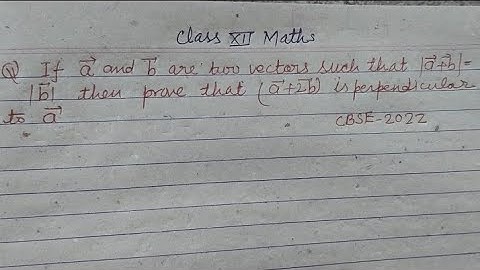 Class XII Maths
Q) If a⃗ and b⃗ are two vectors such that |a⃗+b⃗|=
|b⃗| then prove that (a⃗+2b⃗) is perpendicular
to a⃗
CBSE-2022